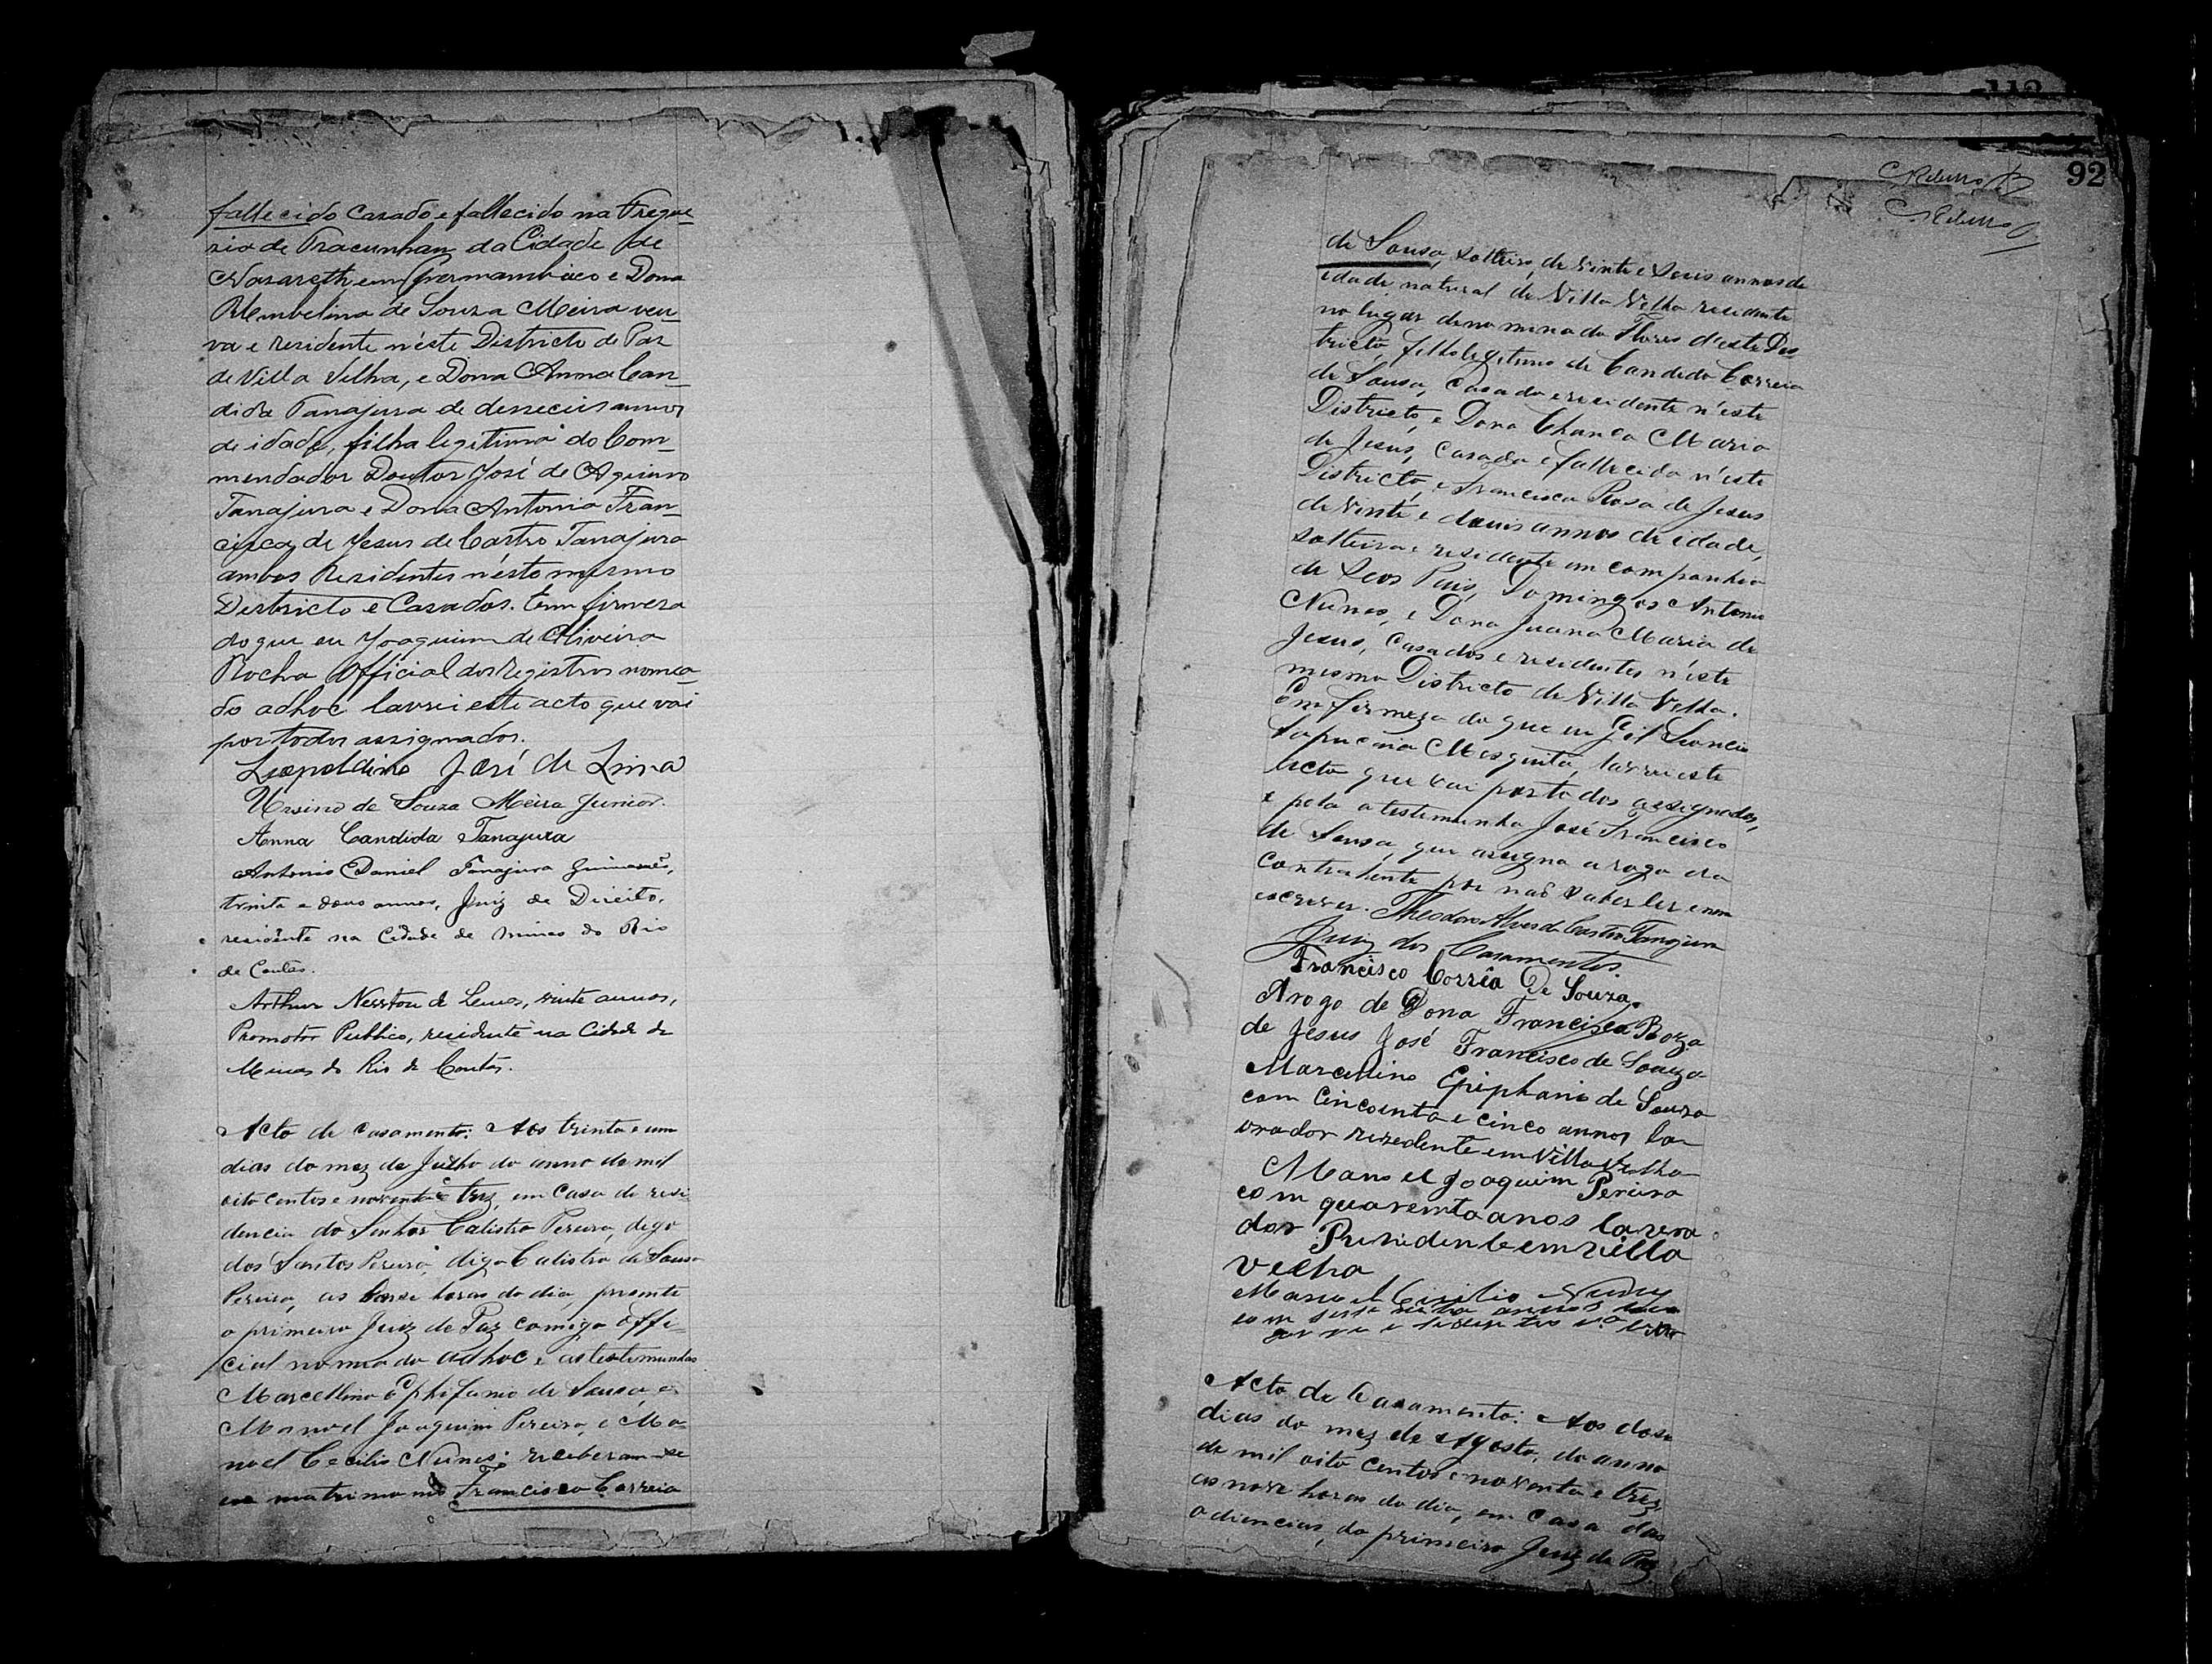 fallecido Casado e fallecido na Fregue
zia de Tracunhan da Cidade de
Nazareth, em Pernambuco e Dona
Umbelina de Souza Meira veu
va e residente n'este Districto de Paz
de Villa Velha, e Dona Anna Can
dida Tanajura de deseseis annos
de idade, filha legitima do Com
mendador Doutor José de Aquino
Tanajura e Dona Antonia Fran
cisca de Jesus de Castro Tanajura
ambos Residentes n'esto mesmo
Destricto e Casados. Em firmesa
do que eu Joaquim de Oliveira
Rocha Official dos registros nomea
do adhoc lavrei este acto que vai
por todos assignados.
Leopoldino José de Lima
Ursino de Souza Meira Junior.
Anna Candida Tanajura
Antonio Daniel Tanajura Guimarães,
trinta e dous annos, Juiz de Direito,
residente na Cidade de Minas do Rio
de Contas.
Arthur Newton de Lemos, vinte annos,
Promotor Publico, residente na Cidade de
Minas do Rio de Contas.
Acto de casamento: Aos trinta e um
dias do mez de Julho do anno de mil
oito centos e noventa e trez, em casa de resi
dencia do Senhor Calistro Pereira, digo
dos Santos Pereira, digo Calistro de Sousa
Pereira, as horas do dia, presente
o primeiro Juiz de Paz comigo Offi
cial nomeado adhoc e as testemunhas
Marcellino Ephifanio de Sousa, e
Manoel Joaquim Pereira, e Ma
noel Cecilio Nunes: receberam-se
em matrimonio Francisco Correia
92
de Sousa, solteiro, de vinte e seis annos de
idade, natural de Villa Velha residente
no lugar denominado Flores d'este Des
tricto, filho legitimo de Candido Correia
de Sousa, casado e residente n'este
Districto, e Dona Maria
de Jesus, casada e fallecida n'este
Districto, e Francisca Rosa de Jesus
de vinte e douis annos de edade,
solteira e residente em companhia
de Seos Pais, Domingos Antonio
Nunes, e Dona Juana Maria de
Jesus, casados e residentes n'este
mesmo Districto de Villa Velha.
Em firmeza do que eu Gil
Mesquita, lavrei este
acto que vai por todos assignados,
e pela a testemunha José Francisco
de Sousa, que assigna a rogo da
contratente por não saber ler e nem
escrever. Theodoro Alves de Castro Tanajura
Juiz dos Casamentos.
Francisco Corrêa De Souza.
Arogo de Dona Francisca Roza
de Jesus José Francisco de Souza
Marcelino Epiphanio de Souza
com cincoenta e cinco annos la
vrador rezedente em Villa Velha
Manoel Joaquim Pereira
com quarenta anos lavra
dor Rezidente em villa
velha
Manoel Cicilio Nunes
com annos
Acto de Casamento: Aos dose
dias do mez de Agosto, do anno
de mil oito centos e noventa e trez,
as nove horas do dia, em casa das
adiencias, do primeiro Juiz de Paz